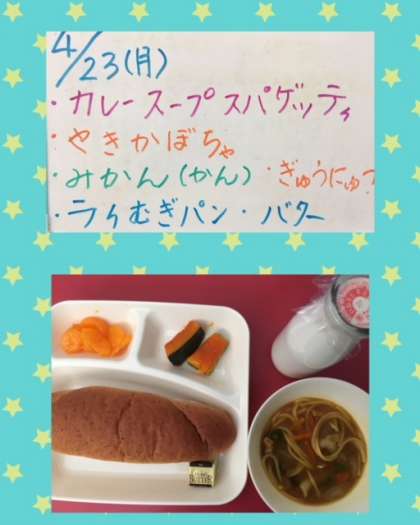 4/23(月)
・カレースープスパゲッティ
・やきかぼちゃ
・みかん(かん)・ぎゅうにゅう
・ライむぎパン・バター